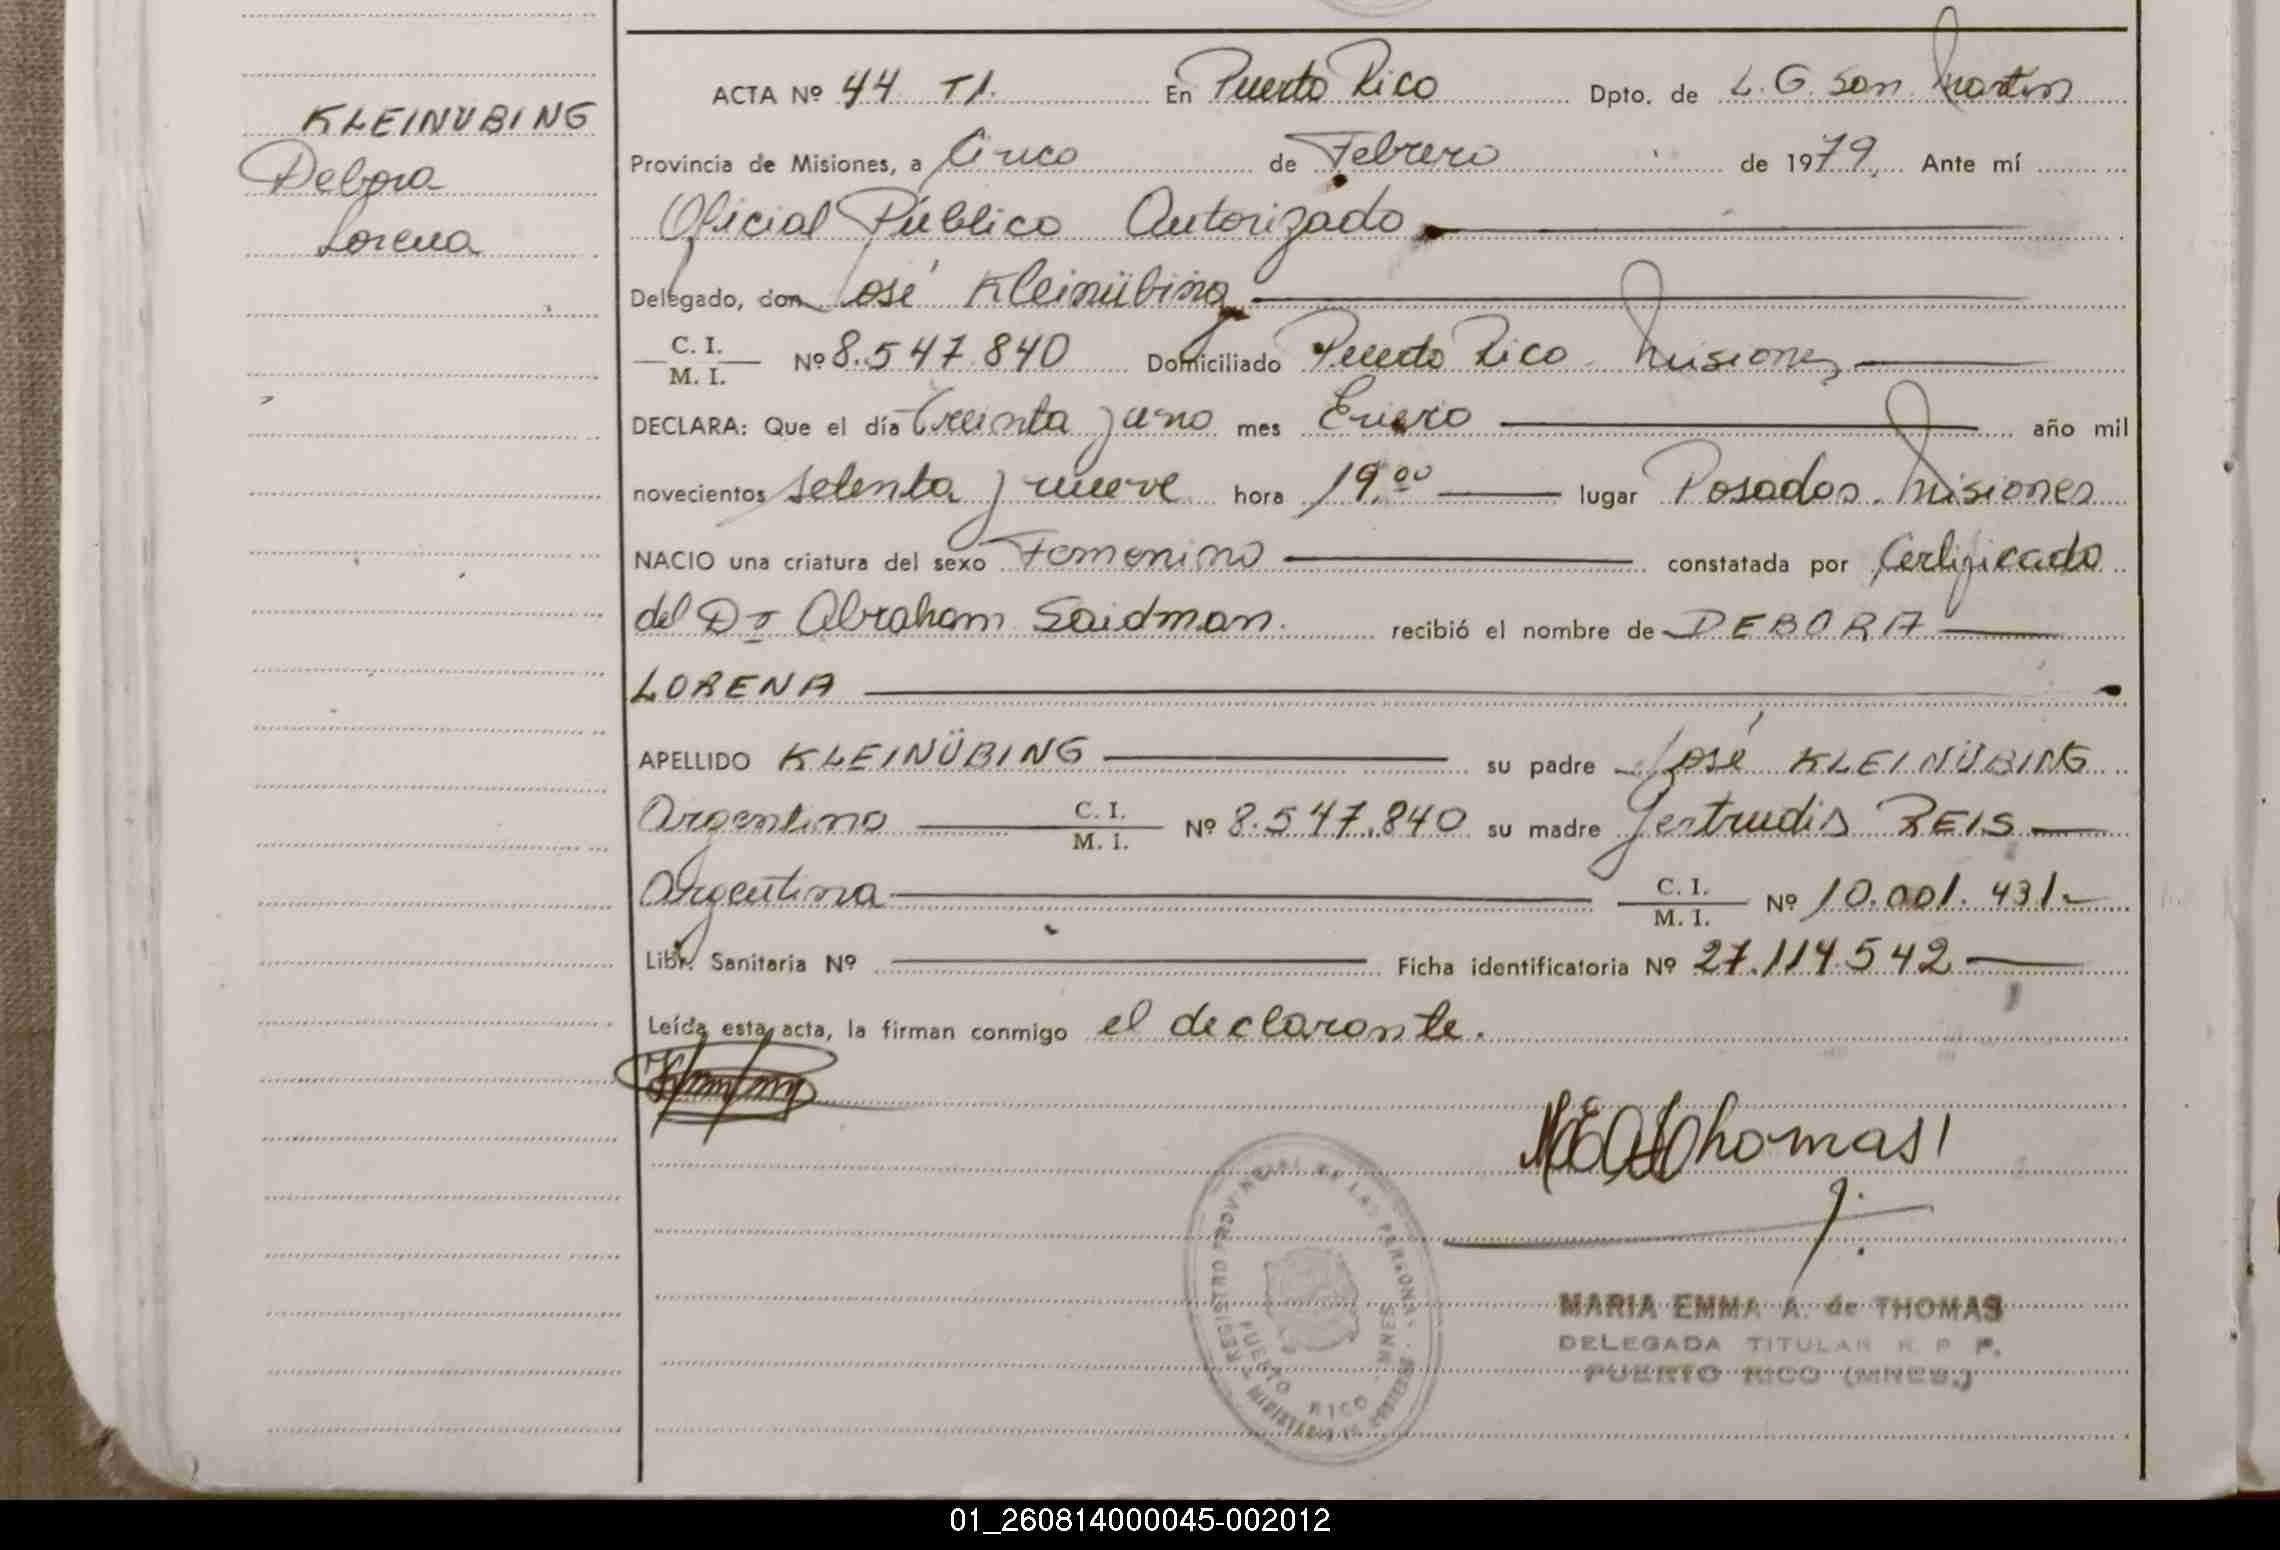 KLEINÜBING
Debora
Lorena
ACTA Nº 44 T1. En Puerto Rico Dpto. de L. G. San Martin
Provincia de Misiones, a Cinco de Febrero de 1979. Ante mí
Oficial Público Autorizado
Delegado, don José Kleinübing
C. I. / M. I. Nº 8.547.840 Domiciliado Puerto Rico - Misiones
DECLARA: Que el día Treinta y uno mes Enero año mil
novecientos setenta y nueve hora 19.00 lugar Posadas. Misiones
NACIO una criatura del sexo Femenino constatada por Certificado
del Dr Abraham Saidman. recibió el nombre de DEBORA
LORENA
APELLIDO KLEINÜBING su padre José KLEINÜBING
Argentino C. I. / M. I. Nº 8.547.840 su madre Gertrudis REIS
Argentina C. I. / M. I. Nº 10.001.431
Libr. Sanitaria Nº Ficha identificatoria Nº 27.114.542
Leída esta acta, la firman conmigo el declarante.
Thomas
REGISTRO PROVINCIAL DE LAS PERSONAS
PUERTO RICO - MNES
MARIA EMMA A. de THOMAS
DELEGADA TITULAR R. P. P.
PUERTO RICO (MNES.)
01_260814000045-002012